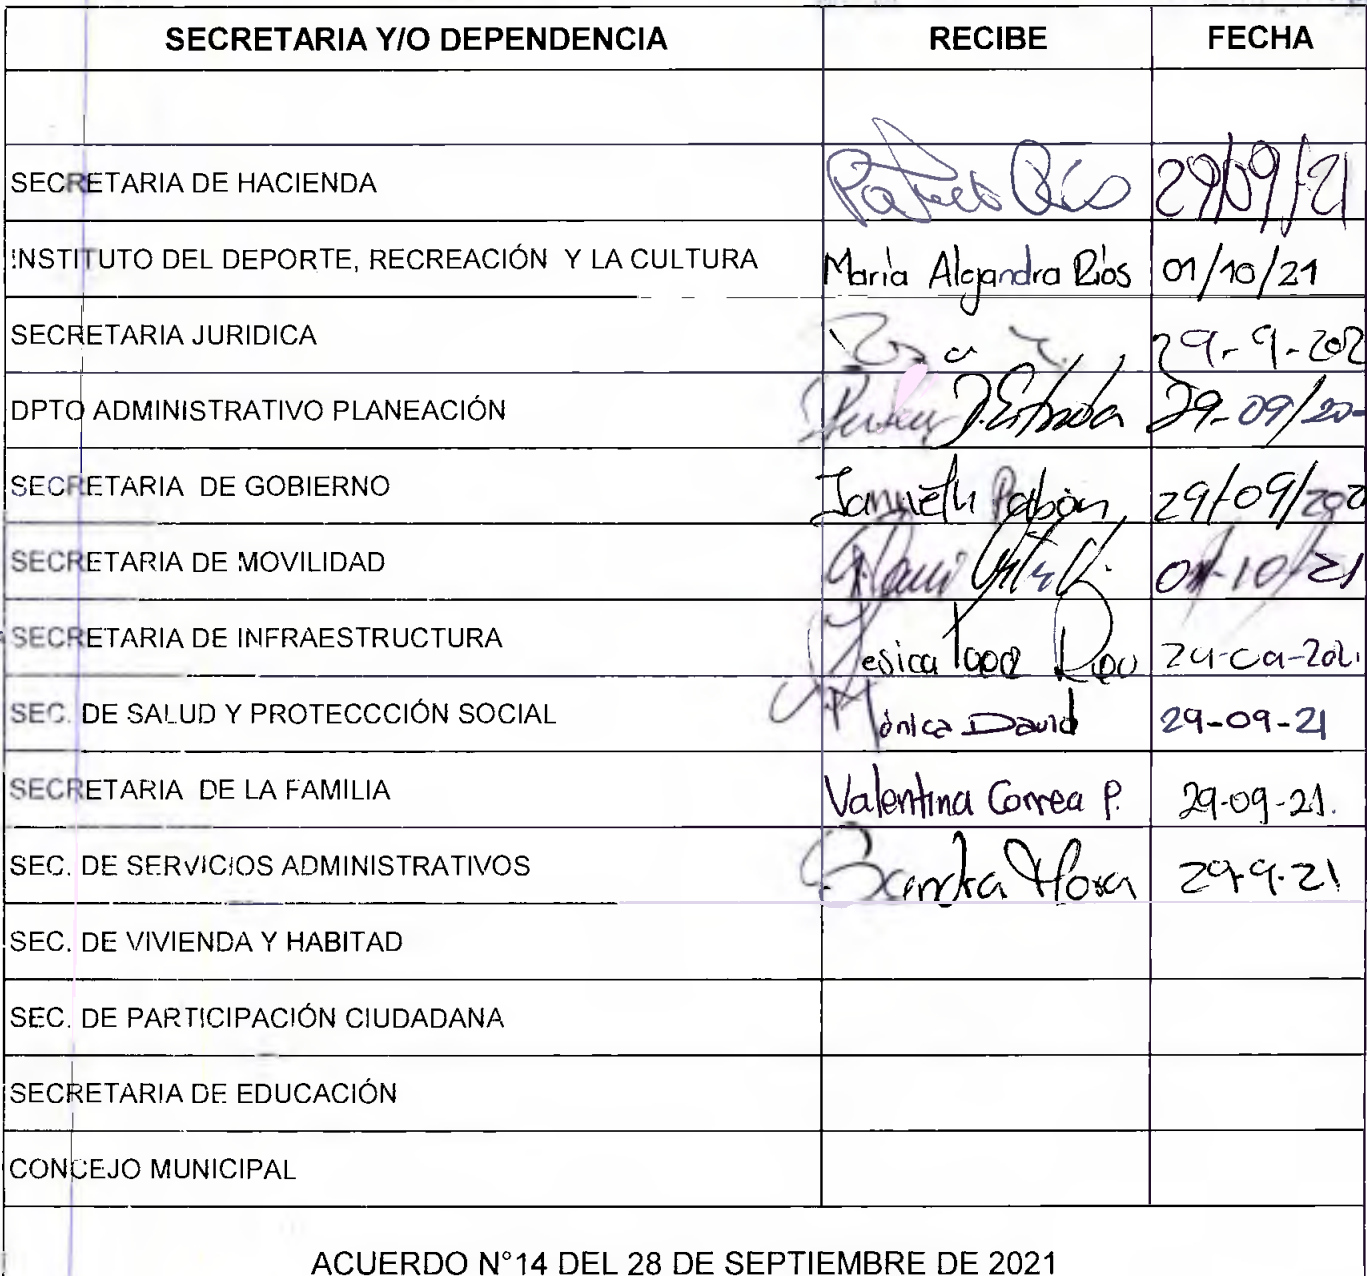 SECRETARIA Y/O DEPENDENCIA RECIBE FECHA
SECRETARIA DE HACIENDA 29/09/21
INSTITUTO DEL DEPORTE, RECREACIÓN Y LA CULTURA María Alejandra Ríos 01/10/21
SECRETARIA JURIDICA 29-9-202
DPTO ADMINISTRATIVO PLANEACIÓN 29-09/20-
SECRETARIA DE GOBIERNO Janneth Pabón 29/09/202
SECRETARIA DE MOVILIDAD 01-10/21
SECRETARIA DE INFRAESTRUCTURA Jesica
SEC. DE SALUD Y PROTECCCIÓN SOCIAL Mónica David 29-09-21
SECRETARIA DE LA FAMILIA Valentina Correa P. 29-09-21.
SEC. DE SERVICIOS ADMINISTRATIVOS Sandra Mora 29-9-21
SEC. DE VIVIENDA Y HABITAD
SEC. DE PARTICIPACIÓN CIUDADANA
SECRETARIA DE EDUCACIÓN
CONCEJO MUNICIPAL
ACUERDO N°14 DEL 28 DE SEPTIEMBRE DE 2021